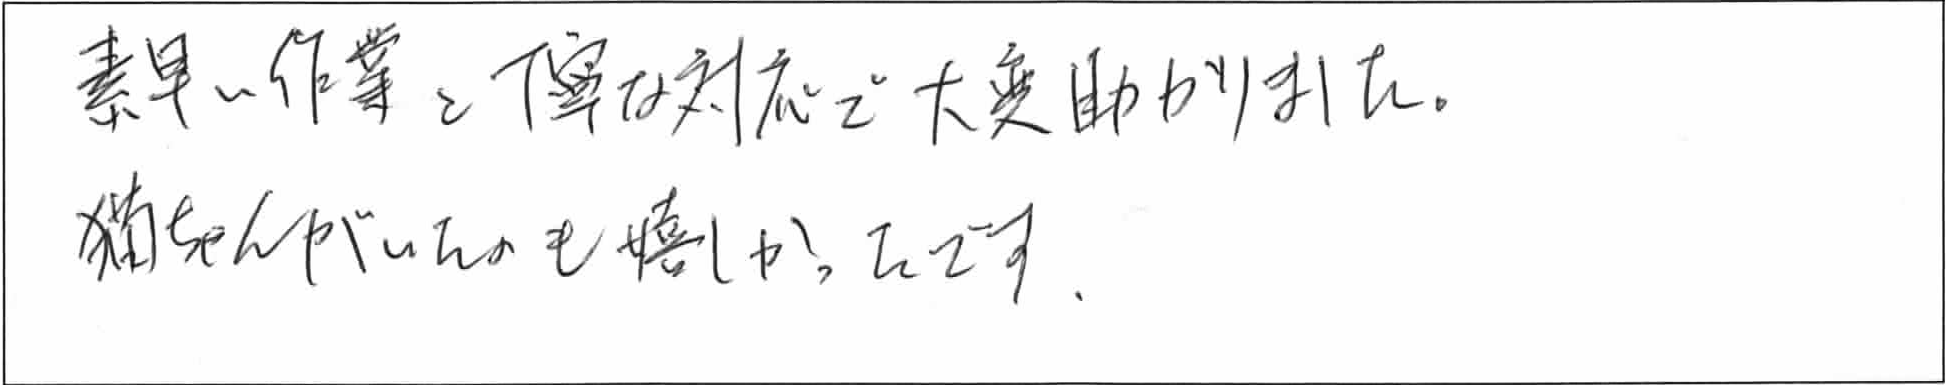 素早い作業と丁寧な対応で大変助かりました。
猫ちゃんがいたのも嬉しかったです.